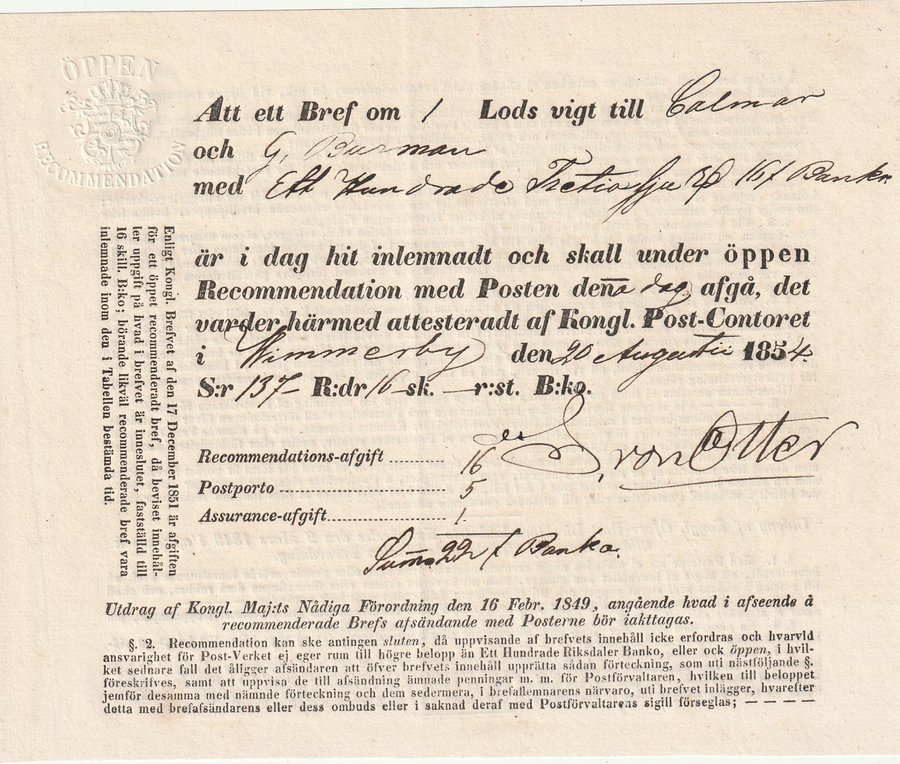 ÖPPEN
RECOMMENDATION
Att ett Bref om 1 Lods vigt till Calmar
och G. Burman
med Ett Hundrade Tretiosju 16 Banko
är i dag hit inlemnadt och skall under öppen
Recommendation med Posten denna dag afgå, det
varder härmed attesteradt af Kongl. Post-Contoret
i Wimmerby den 20 Augusti 1854.
S:r 137 R:dr 16 sk. — r:st. B:ko.
S. von Otter
Recommendations-afgift ......... 16
Postporto ......... 5
Assurance-afgift ......... 1.
Summa 22 Banko.
Enligt Kongl. Brefvet af den 17 December 1851 är afgiften
för ett öppet recommenderadt bref, då beviset innehål-
ler uppgift på hvad i brefvet är inneslutet, fastställd till
16 skill. B:ko; börande likväl recommenderade bref vara
inlemnade inom den i Tabellen bestämda tid.
Utdrag af Kongl. Maj:ts Nådiga Förordning den 16 Febr. 1849, angående hvad i afseende å
recommenderade Brefs afsändande med Posterne bör iakttagas.
§. 2. Recommendation kan ske antingen sluten, då uppvisande af brefvets innehåll icke erfordras och hvarvid
ansvarighet för Post-Verket ej eger rum till högre belopp än Ett Hundrade Riksdaler Banko, eller ock öppen, i hvil-
ket sednare fall det åligger afsändaren att öfver brefvets innehåll upprätta sådan förteckning, som uti nästföljande §.
föreskrifves, samt att uppvisa de till afsändning ämnade penningar m. m. för Postförvaltaren, hvilken till beloppet
jemför desamma med nämnde förteckning och dem sedermera, i brefaflemnarens närvaro, uti brefvet inlägger, hvarefter
detta med brefafsändarens eller dess ombuds eller i saknad deraf med Postförvaltarens sigill förseglas; — — — —